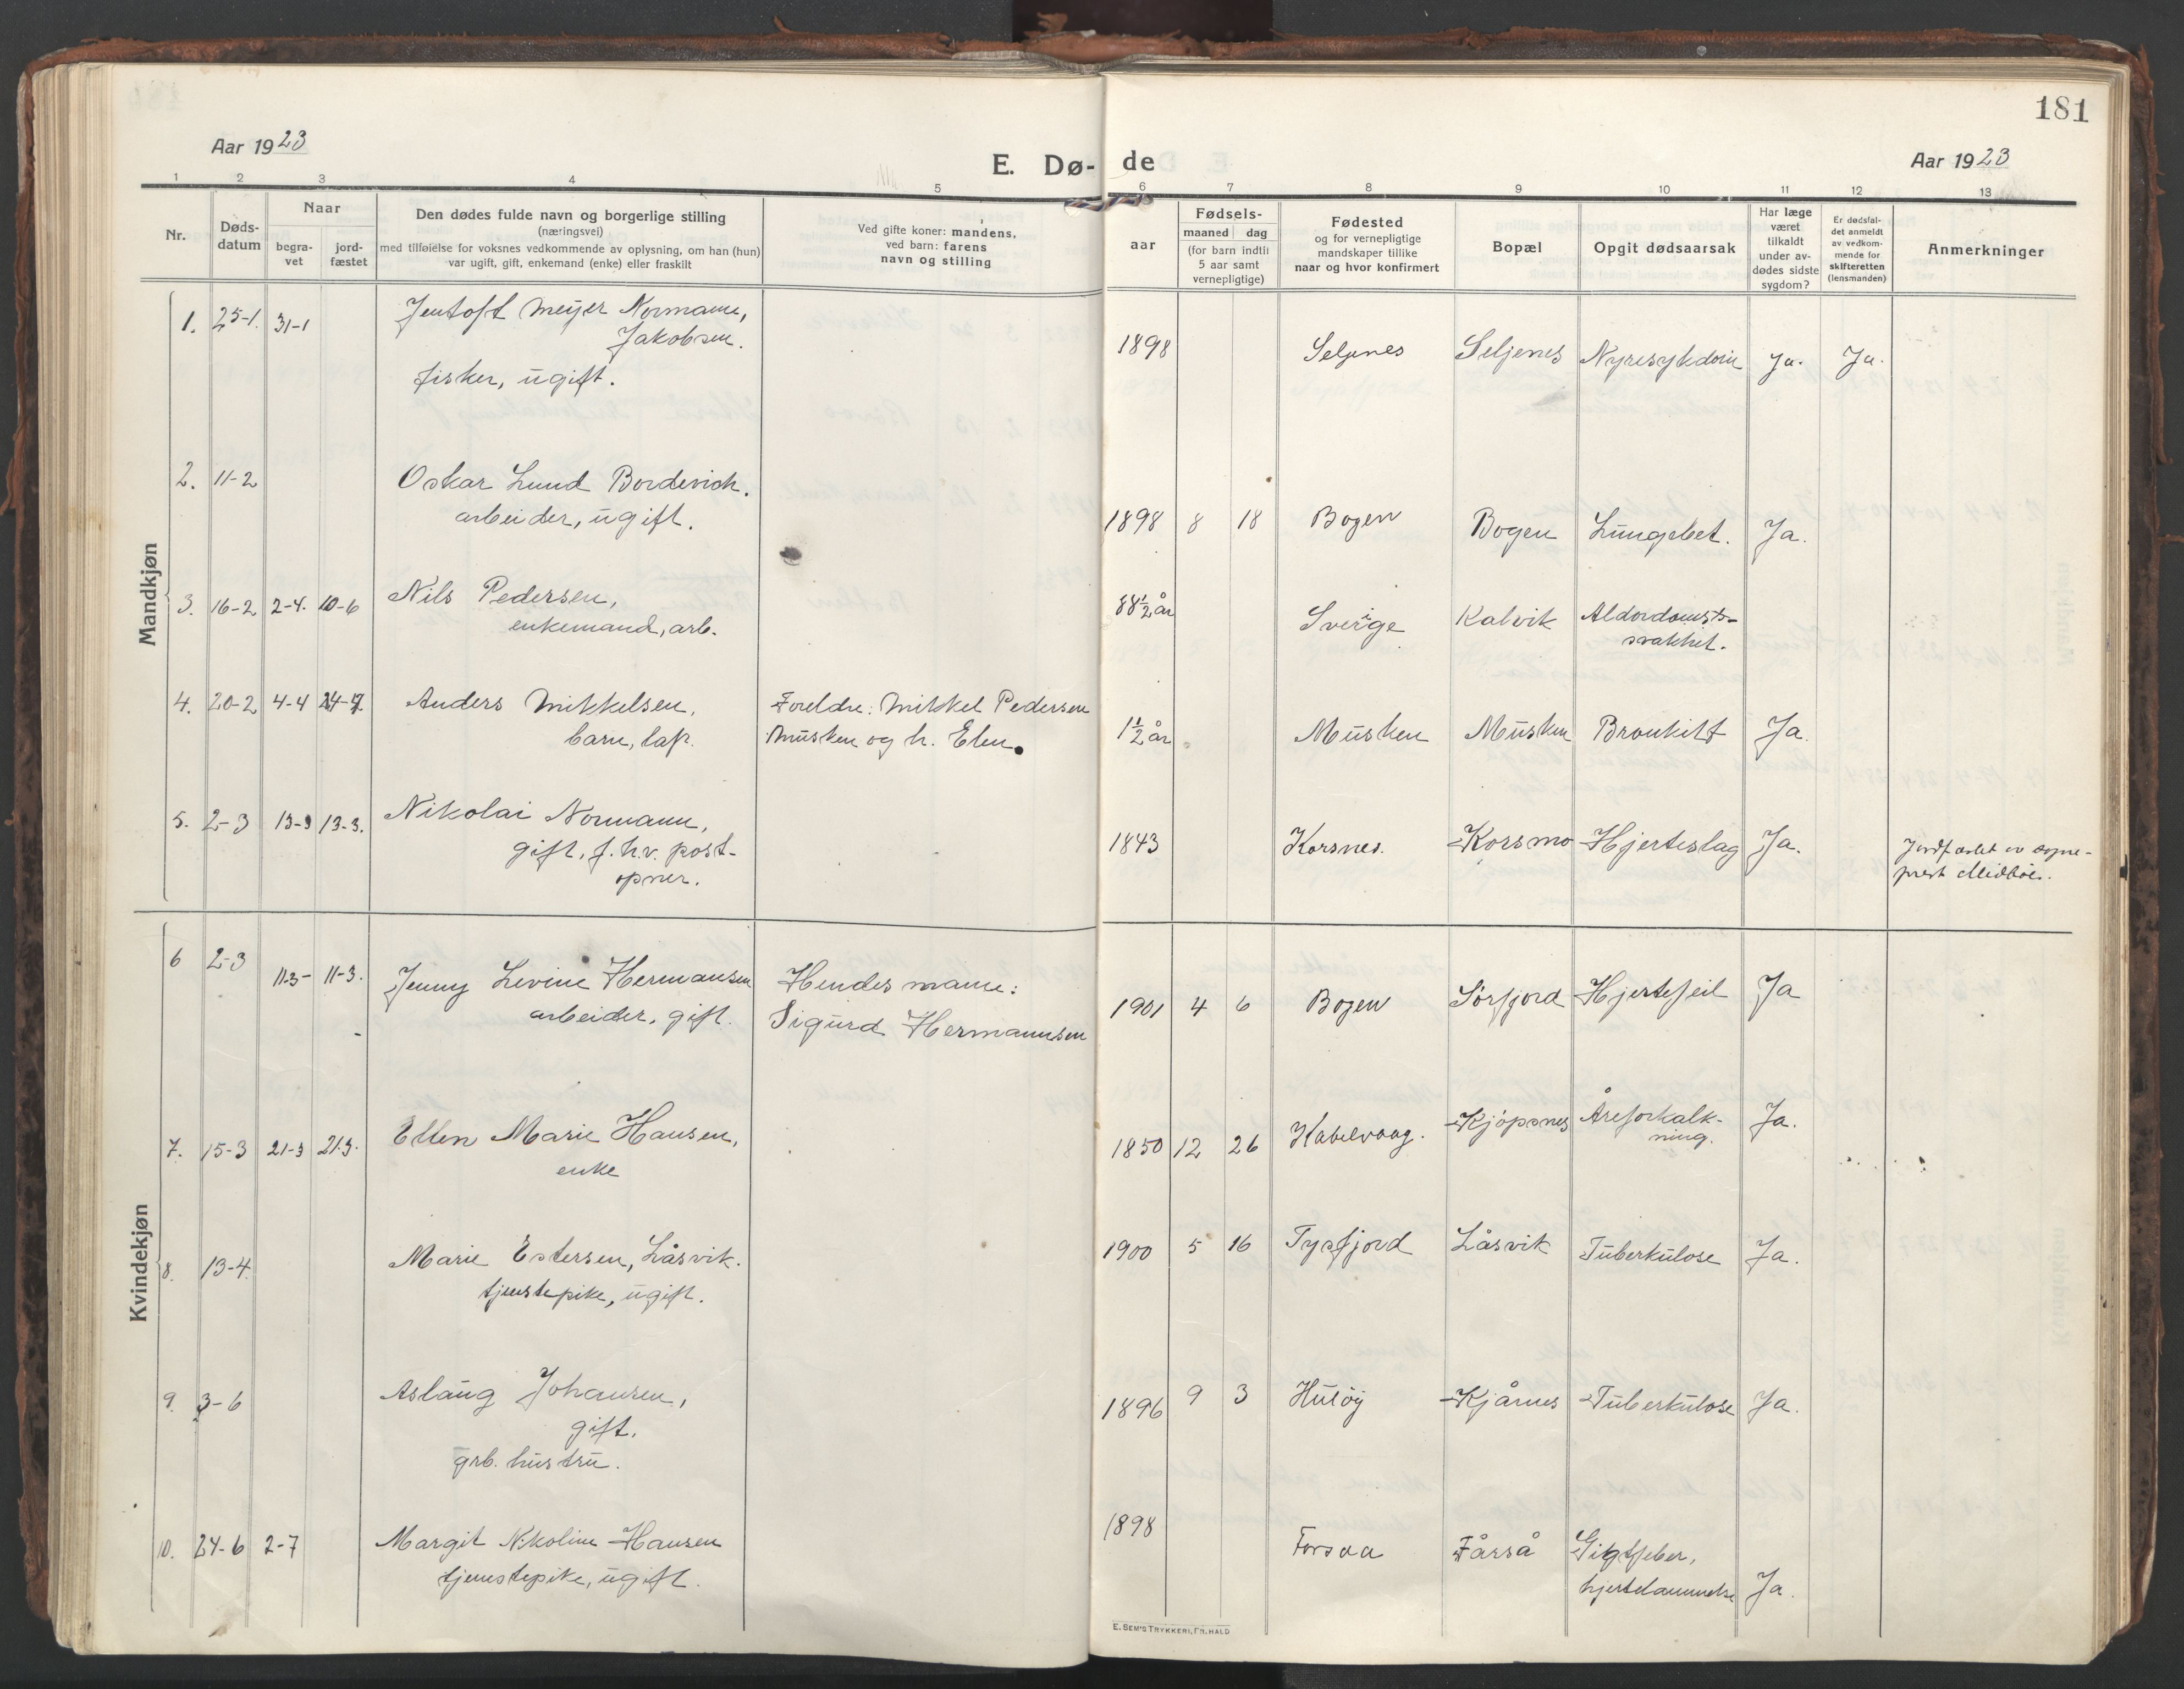 181
Aar 1923
E. Dø- de
Aar 1923
1 2 3 4 5 6 7 8 9 10 11 12 13
Nr.
Døds-
datum
Naar
begra-
vet
jord-
fæstet
Den dødes fulde navn og borgerlige stilling
(næringsvei)
med tilføielse for voksnes vedkommende av oplysning, om han (hun)
var ugift, gift, enkemand (enke) eller fraskilt
Ved gifte koner: mandens,
ved barn: farens
navn og stilling
aar
Fødsels-
maaned dag
(for barn indtil
5 aar samt
vernepligtige)
Fødested
og for vernepligtige
mandskaper tillike
naar og hvor konfirmert
Bopæl
Opgit dødsaarsak
Har læge
været
tilkaldt
under av-
dødes sidste
sygdom?
Er dødsfal-
det anmeldt
av vedkom-
mende for
skifteretten
(lensmanden)
Anmerkninger
Mandkjøn
1. 25-1. 31-1 Jentoft Meyer Normann,
Jakobsen.
fisker, ugift.
1898 Seljenes Seljenes Nyresykdom Ja. Ja.
2. 11-2 Oskar Lund Bordevich.
arbeider, ugift.
1898 8 18 Bogen Bogen Lungebet. Ja.
3. 16-2 2-4. 10-6 Nils Pedersen,
enkemand, arb.
88 1/2 år Sverige Kalvik Alderdoms-
svakhet.
4. 20-2 4-4 Anders Mikkelsen,
barn, lap.
Foreldre: Mikkel Pedersen
Musken og h. Elen.
1 1/2 år Musken Musken Bronkitt Ja.
5. 2-3 13-3 13-3. Nikolai Normann,
gift, f.h.v. post-
opner.
1843 Korsnes. Korsmo Hjerteslag Ja.
Jordfæstet av sogne-
prest Midbøe.
Kvindekjøn
6 2-3 11.3- 11-3. Jenny Levine Hermansen
arbeider, gift.
Hendes mann:
Sigurd Hermannsen
1901 4 6 Bogen Sørfjord Hjertefeil Ja
7. 15-3 21-3 21.3. Ellen Marie Hansen,
enke
1850 12 26 Kabelvaag. Kjøpsnes Åreforkalk-
ning. Ja.
8. 13-4. Marie Estersen, Låsvik.
tjenstepike, ugift.
1900 5 16 Tysfjord Låsvik Tuberkulose Ja.
9. 3-6 Aslaug Johansen,
gift.
grb. hustru.
1896 9 3 Huløy Kjårnes Tuberkulose Ja.
10. 24-6 2-7 Margit Nikoline Hansen
tjenstepike, ugift.
1898 Forsaa Fårså Gigtfeber,
hjertelammelse Ja.
E. SEM'S TRYKKERI, FR.HALD